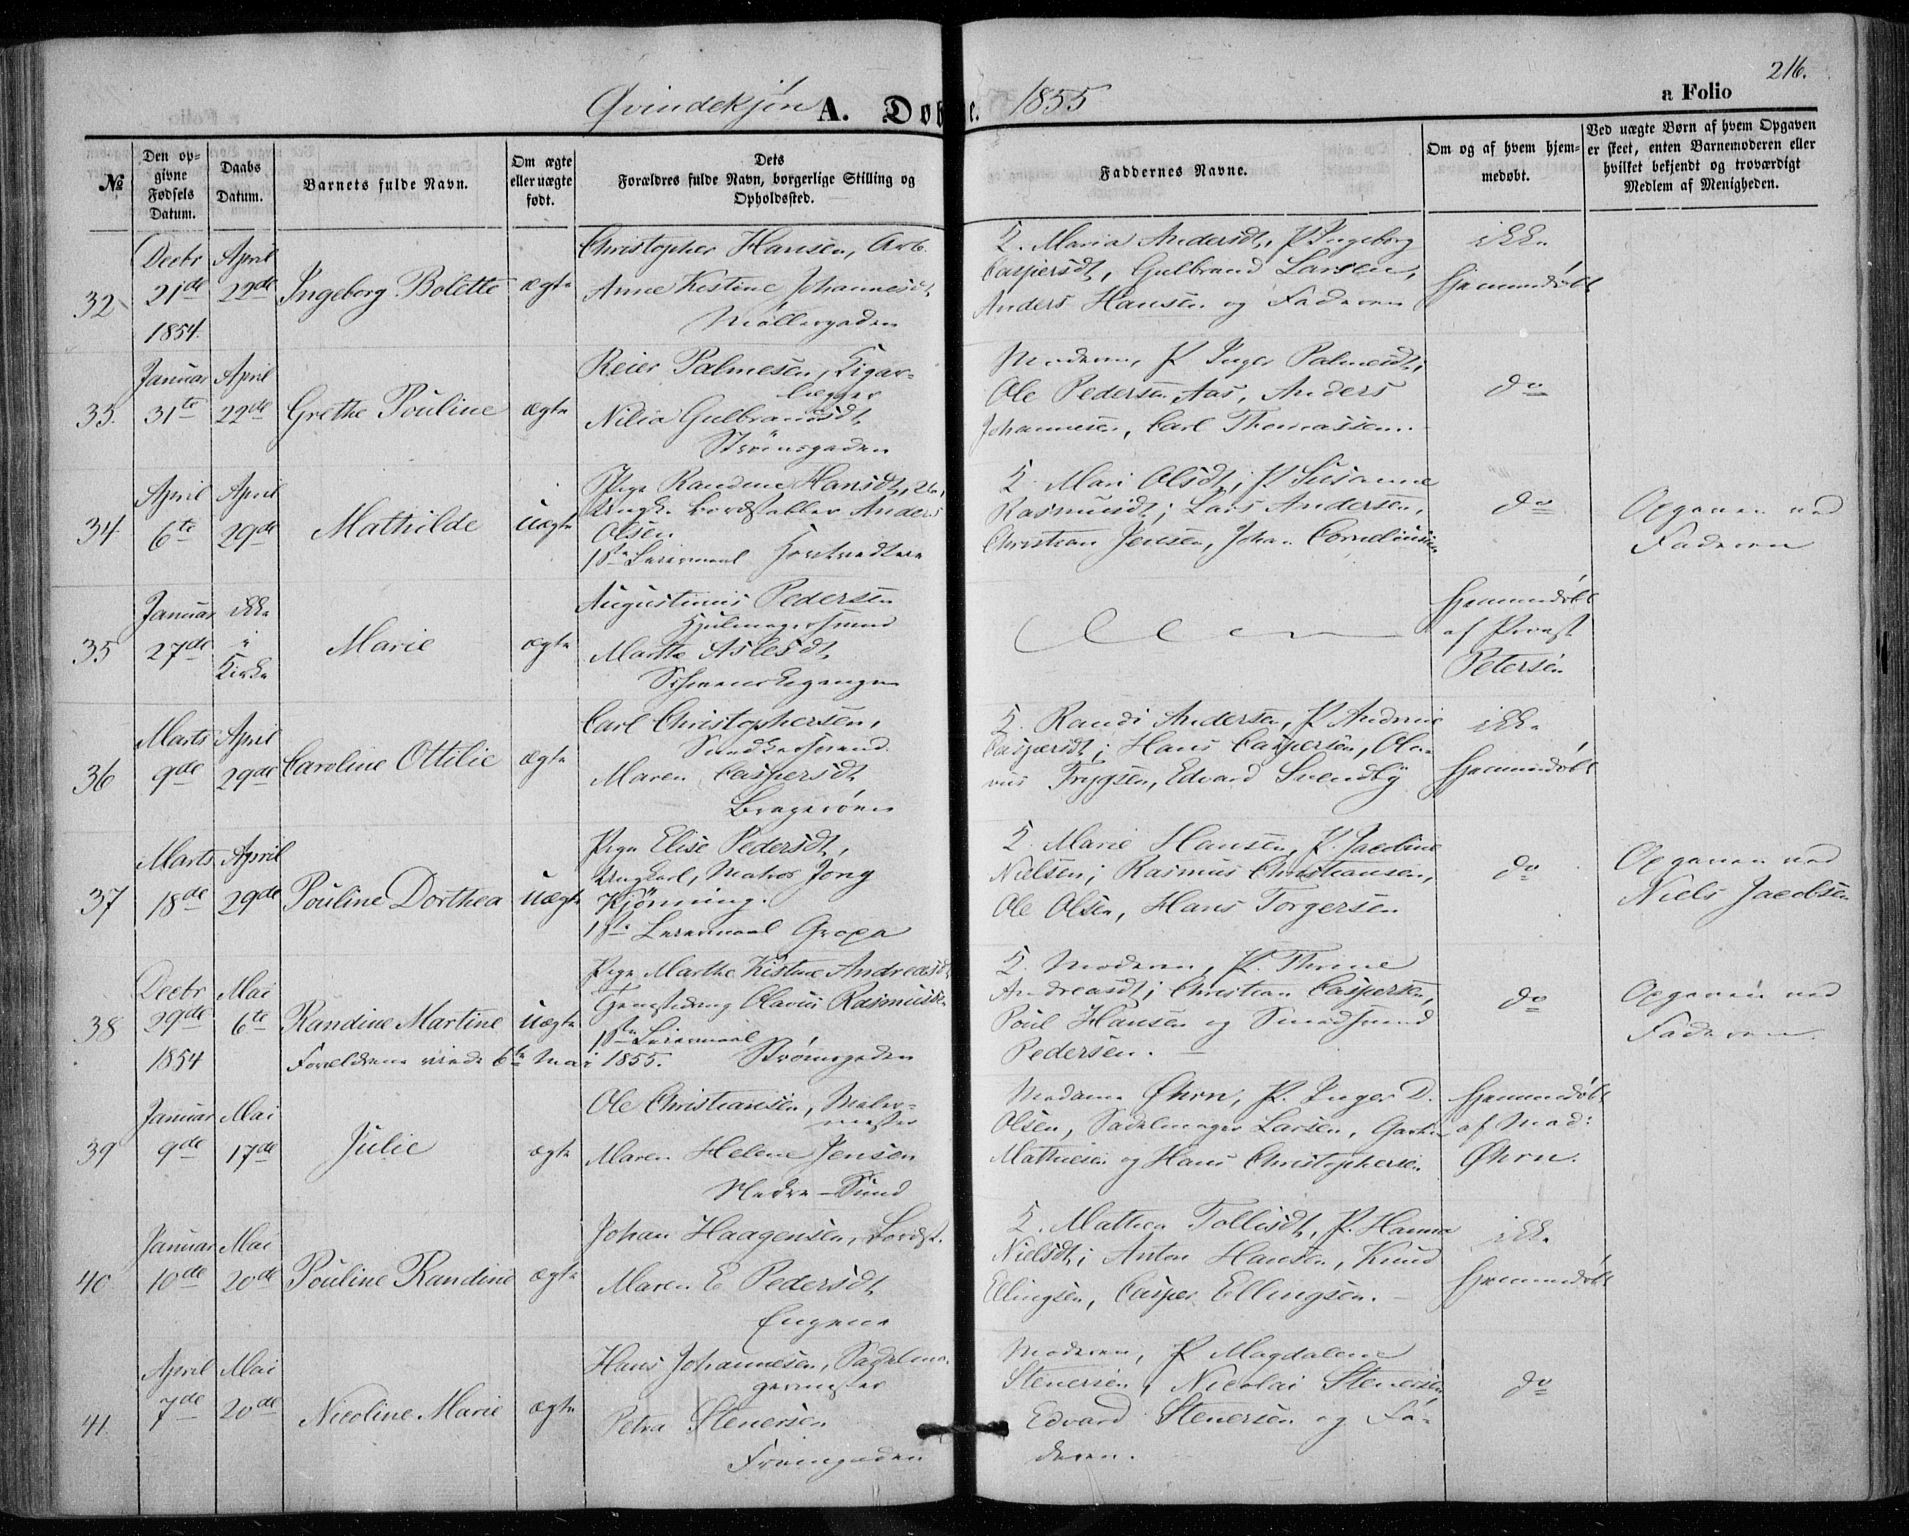 216.
Qvindekjøn A. Døbte. 1855
a Folio
№
Den op-
givne
Fødsels
Datum.
Daabs
Datum.
Barnets fulde Navn.
Om ægte
eller uægte
født.
Dets
Forældres fulde Navn, borgerlige Stilling og
Opholdssted.
Faddernes Navne.
Om og af hvem hjem-
medøbt.
Ved uægte Børn af hvem Opgaven
er skeet, enten Barnemoderen eller
hvilket bekjendt og troværdigt
Medlem af Menigheden.
32
Decbr
21de
1854.
April
22de
Ingeborg Bolette
ægte
Christopher Hansen, Arb.
Anne Kistine Johannesdt
Møllergaden
K. Maria Andersdt, P. Ingeborg
Caspersdt, Gulbrand Larsen,
Anders Hansen og Faderen
ikke
hjemmedøbt
33.
Januar
31te
April
22de
Grethe Pouline
ægte
Reier Palmesen, Sigar-
Nilia Gulbrandsdt
Strømsgaden
Moderen, P. Inger Palmesdt,
Ole Pedersen Aas, Anders
Johannesen, Carl Thomassen.
do
34.
April
6te
April
29de
Mathilde
uægte
Pige Randine Hansdt, 26,
Ungk. Bordstabler Anders
Olsen
1ste Leiermaal
K. Mari Olsdt, P. Susanne
Rasmusdt, Lars Andersen,
Christian Jensen, Johan Corneliussen
do
Opgaven ved
Faderen
35
Januar
27de
ikke
i
Kirke
Marie
ægte
Augustinus Pedersen
Hjulmagersvend
Marthe Aslesdt
hjemmedøbt
af Provst
Petersen
36
Marts
9de
April
29de
Caroline Ottilie
ægte
Carl Christophersen,
Snedkersvend
Maren Caspersdt
Bragerøen
K. Randi Andersen, P. Andrine
Caspersdt, Hans Caspersen, Ola-
vus Trygsen, Edvard Svendby
ikke
hjemmedøbt
37
Marts
18de
April
29de
Pouline Dorthea
uægte
Pige Elise Pedersdt,
Ungkarl, Matros Jørg
Kjønning.
1ste Leiermaal
K. Marie Hansen, P. Jacobine
Nielsen, Rasmus Christiansen,
Ole Olsen, Hans Torgersen
do
Opgaven ved
Niels Jacobsen
38
Decbr
29de
1854
Mai
6te
Randine Martine
uægte
Forældrene viede 6te Mai 1855.
Pige Marthe Kistine Andreasdt
Olavus Rasmussen
1ste Leiermaal
Strømsgaden
K. Moderen, P. Thrine
Andreasdt, Christian Caspersen,
Poul Hansen og Smedsvend
Pedersen.
do
Opgaven ved
Faderen
39
Januar
9de
Mai
17de
Julie
ægte
Ole Christiansen, Maler-
mester
Maren Helene Jensen
Nedre-Sund
Madame Øhrn, P. Inger D.
Olsen, Sadelmager Larsen,
Mathiesen og Hans Christophersen
hjemmedøbt
af Mad:
Øhrn.
40
Januar
10de
Mai
20de
Pouline Randine
ægte
Johan Haagensen, Bordst.
Maren E Pedersdt
Engene
K. Mathea Tollisdt, P. Hanna
Nielsdt, Anton Hansen, Knud
Ellingsen, Casper Ellingsen.
ikke
hjemmedøbt
41
April
7de
Mai
20de
Nicoline Marie
ægte
Hans Johannesen, Sadelma-
germester
Petra Stenersen
Moderen, P. Magdalene
Stenersen, Nicolai Stenersen
Edvard Stenersen og Fa-
deren.
do